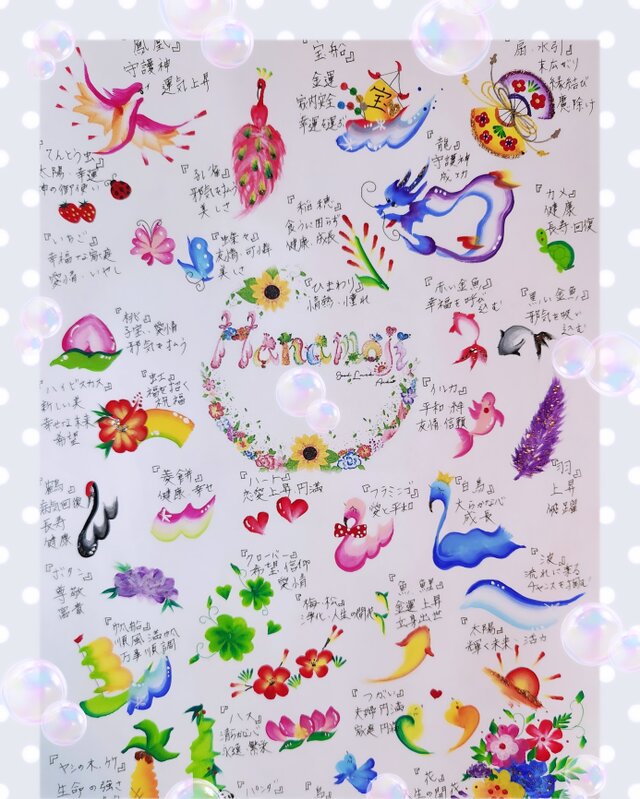 鳳凰』
守護神
運気上昇
『宝船』
金運
家内安全
幸運を運ぶ
『扇・水引』
末広がり
縁結び
魔除け
『てんとう虫』
太陽・幸運
神の御使い
『孔雀』
邪気を払う
美しさ
『龍』
守護神
成功
『カメ』
健康
長寿・回復
『いちご』
幸福な家庭
愛情・いやし
『蝶々』
友情・可能
美しさ
『稲穂』
食うに困らず
健康・成長
『ひまわり』
情熱・憧れ
『赤い金魚』
幸福を呼び
込む
『黒い金魚』
邪気を吸い
込む
『桃』
子宝・愛情
邪気を払う
Hanamoji
『ハイビスカス』
新しい美
幸せな未来
希望
『虹』
福を招く
祝福
『イルカ』
平和 絆
友情 信頼
『羽』
上昇
飛躍
『鶴』
病気回復
長寿
健康
『菱餅』
健康・幸せ
『ハート』
恋愛上昇・円満
『フラミンゴ』
愛と平和
『白鳥』
大らかな心
成長
『波』
流れに乗る
チャンスを掴む
『ボタン』
尊敬
富貴
『クローバー』
希望 信仰
愛情
『梅・松』
浄化・人生の開花
『魚
金運上昇
立身出世
『帆船』
順風満帆
万事順調
『太陽』
輝く未来・活力
『ハス』
清らかな心
永遠 繁栄
『つがい』
夫婦円満
家庭円満
『ヤシの木、竹』
生命の強さ
『パンダ』
『鳥』
『花』
人生の開花